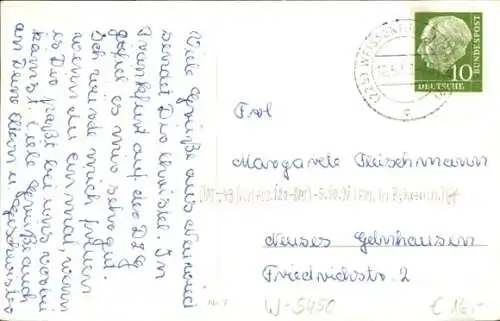 Viele Grüße aus Neuwied
sendet Dir Christel. In
Frankfurt auf der DLG
gefiel es mir sehr gut.
Ich würde mich freuen
wenn du ein mal, wenn
es Dir paßt bei uns vorbei
kamst. Liebe Grüße auch
an Deine Eltern u. Geschwister
DEUTSCHE
BUNDESPOST
10
(22b) WEISSENT
Frl
Margarete Fleischmann
Neuses Gelnhausen
Friedrichstr. 2
W-5450
€ 16,-